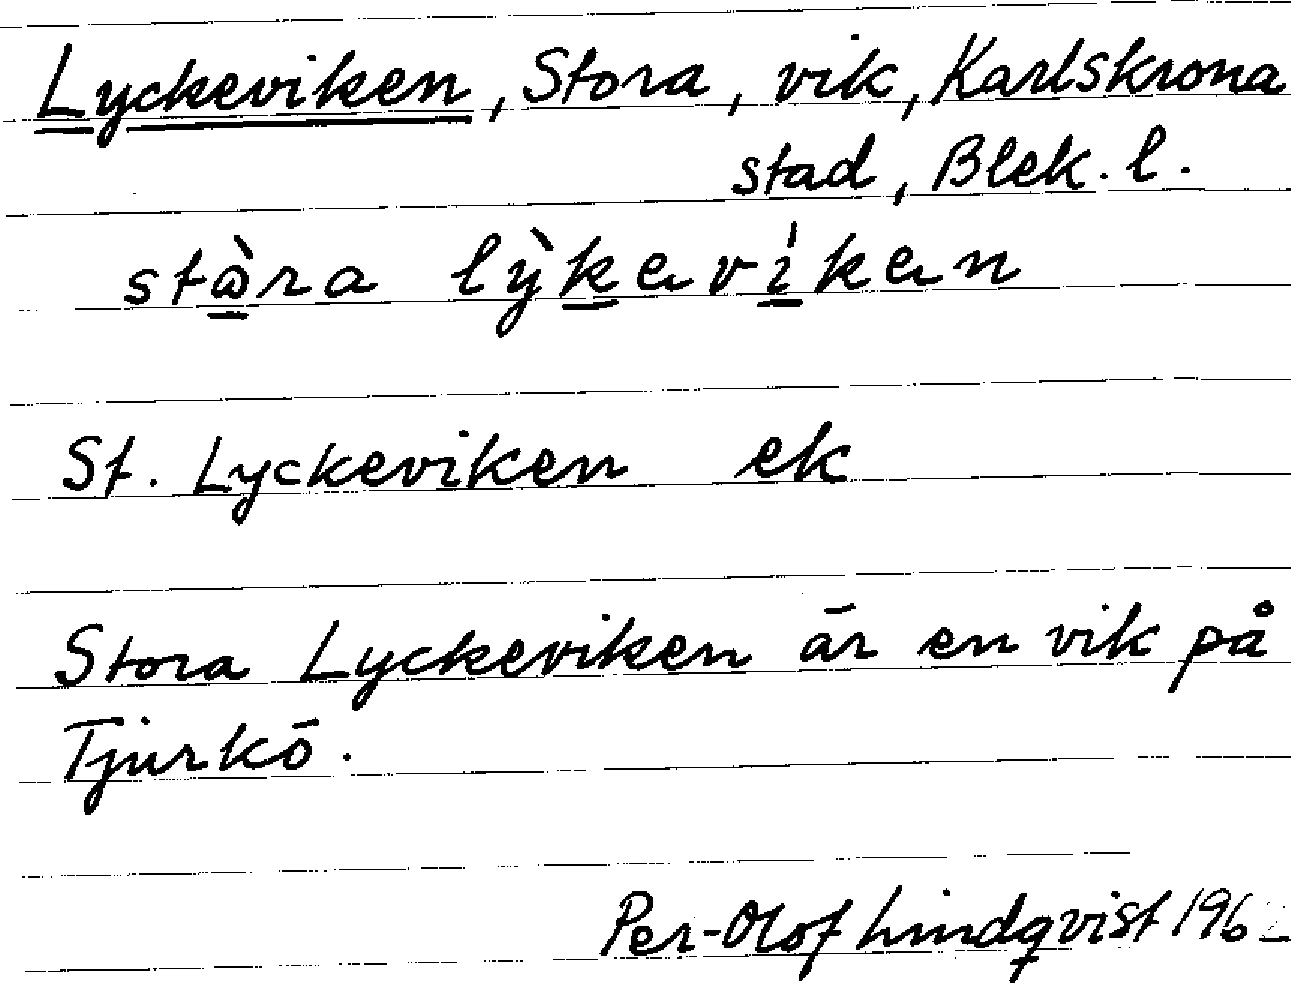 Lyckeviken, Stora, vik, Karlskrona
stad, Blek. l.
Sf. Lyckeviken ek
Stora Lyckeviken är en vik på
Tjurkö.
Per-Olof Lindqvist